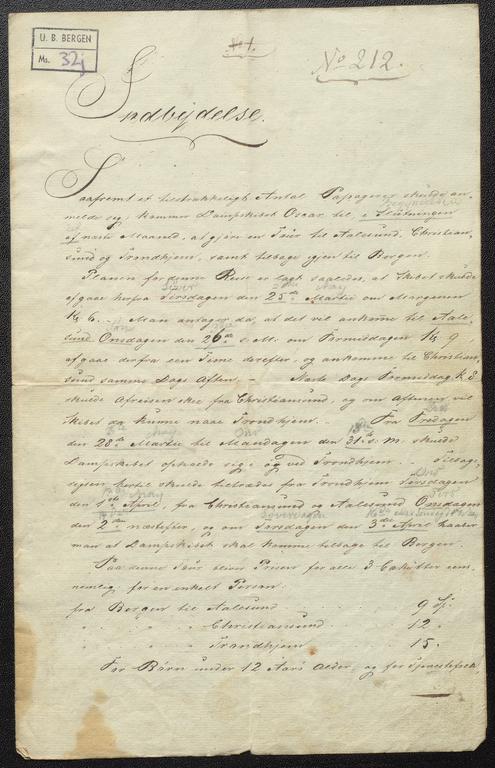 U. B. BERGEN
Ms. 32j
No 212.
Indbydelse.
Saafremt et tilstrækkeligt Antal Passagerer skulde an-
melde sig, kommer Dampskibet Oscar til, i Slutningen
af næste Maaned, at gjøre en Tour til Aalesund, Christian-
sund og Trondhjem, samt tilbage igjen til Bergen.
Planen for denne Reise er lagt saaledes, at Skibet skulde
afgaae herfra Tirsdagen den 25de Martii om Morgenen
Kl 6. Man antager da, at det vil ankomme til Aale-
sund Onsdagen den 26de s. M. om Formiddagen Kl 9,
afgaae derfra een Time derefter, og ankomme til Christian-
sund samme Dags Aften. - Næste Dags Formiddag K 8
skulde Afreisen skee fra Christiansund, og om Aftenen vil
Skibet da kunne naae Trondhjem. Fra Fredagen
den 28de Martii til Mandagen den 31te s. m. skulde
Dampskibet opholde sig i og ved Trondhjem. - Tilbage-
rejsen hertil skulde tiltrædes fra Trondhjem Tirsdagen
den 1ste April, fra Christiansund og Aalesund Onsdagen
den 2den næstefter, og om Torsdagen den 3die April haaber
man at Dampskibet skal komme tilbage til Bergen.
Paa denne Tour bliver Prisen for alle 3 Cahütter een-
nemlig for en enkelt Person:
fra Bergen til Aalesund . . . . 9 Sp.
" " " Christiansund . . . 12 "
" " " Trondhjem . . . . 15 "
For Børn under 12 Aars Alder, og for Tjenestefolk